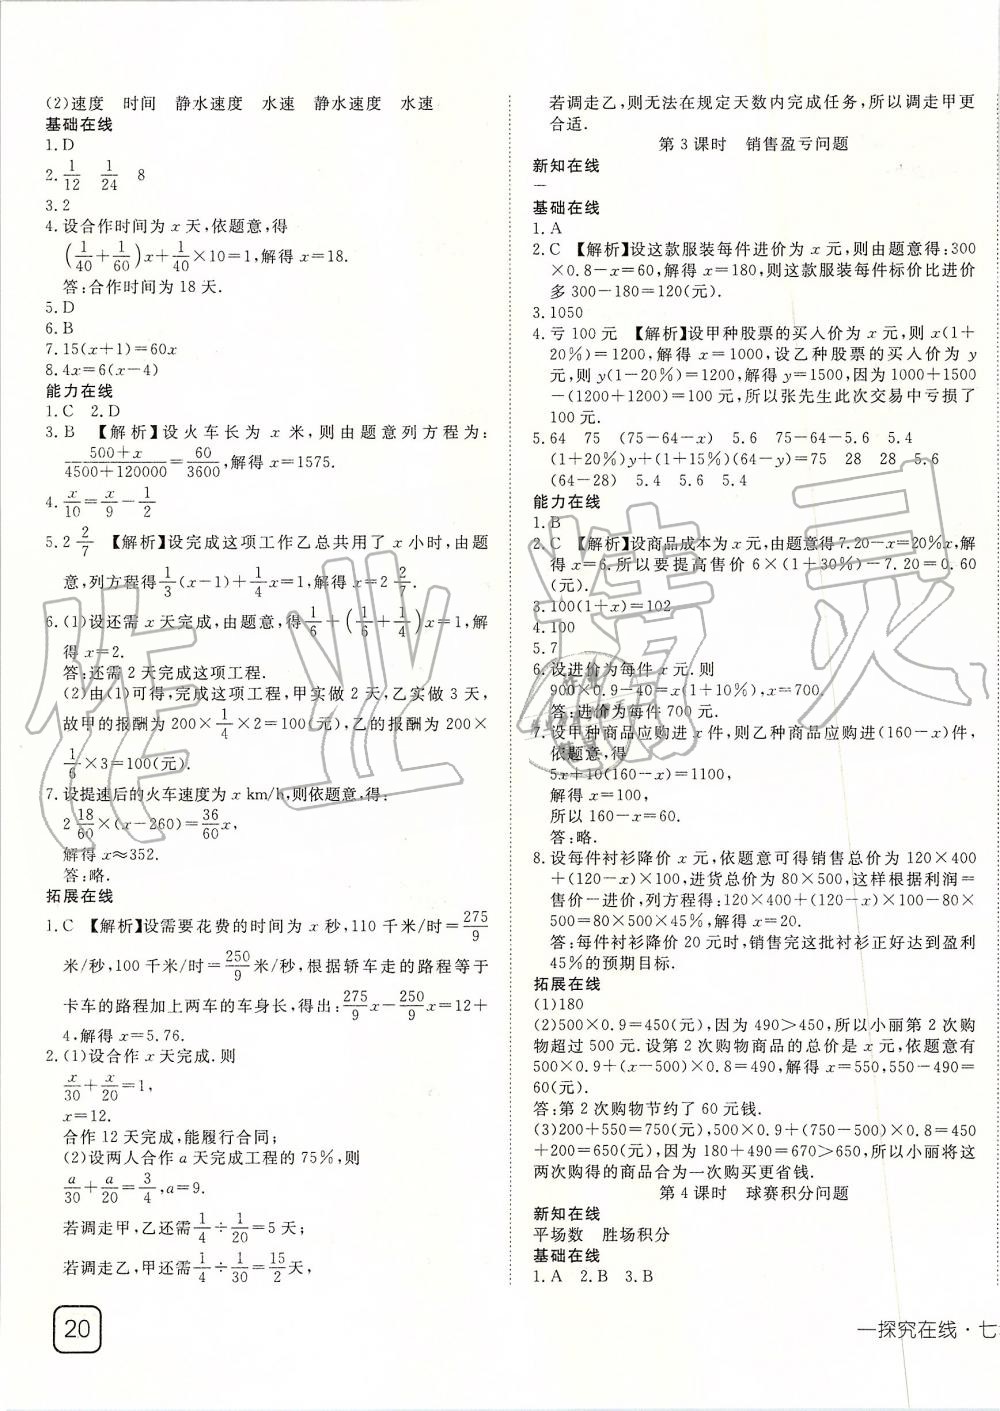 (2)速度　时间　静水速度　水速　静水速度　水速
基础在线
1. D
2. 1/12　1/24　8
3. 2
4. 设合作时间为 x 天,依题意,得
(1/40+1/60)x+1/40×10=1,解得 x=18.
答:合作时间为 18 天.
5. D
6. B
7. 15(x+1)=60x
8. 4x=6(x-4)
能力在线
1. C　2. D
3. B　【解析】设火车长为 x 米,则由题意列方程为:
(500+x)/(4500+120000)=60/3600,解得 x=1575.
4. x/10=x/9-1/2
5. 2 2/7　【解析】设完成这项工作乙总共用了 x 小时,由题
意,列方程得1/3(x-1)+1/4x=1,解得 x=2 2/7.
6. (1)设还需 x 天完成,由题意,得1/6+(1/6+1/4)x=1,解
得 x=2.
答:还需 2 天完成这项工程.
(2)由(1)可得,完成这项工程,甲实做 2 天,乙实做 3 天,
故甲的报酬为 200×1/4×2=100(元),乙的报酬为 200×
1/6×3=100(元).
7. 设提速后的火车速度为 x km/h,则依题意,得:
2 18/60×(x-260)=36/60x,
解得 x≈352.
答:略.
拓展在线
1. C　【解析】设需要花费的时间为 x 秒,110 千米/时=275/9
米/秒,100 千米/时=250/9米/秒,根据轿车走的路程等于
卡车的路程加上两车的车身长,得出:275/9x-250/9x=12+
4,解得 x=5.76.
2. (1)设合作 x 天完成.则
x/30+x/20=1,
x=12.
合作 12 天完成,能履行合同;
(2)设两人合作 a 天完成工程的 75%,则
a/30+a/20=3/4,a=9.
若调走甲,乙还需1/4÷1/20=5 天;
若调走乙,甲还需1/4÷1/30=15/2天,
20
若调走乙,则无法在规定天数内完成任务,所以调走甲更
合适.
第 3 课时　销售盈亏问题
新知在线
—
基础在线
1. A
2. C　【解析】设这款服装每件进价为 x 元,则由题意得:300
×0.8-x=60,解得 x=180,则这款服装每件标价比进价
多 300-180=120(元).
3. 1050
4. 亏 100 元　【解析】设甲种股票的买入价为 x 元,则 x(1+
20%)=1200,解得 x=1000,设乙种股票的买入价为 y
元,则 y(1-20%)=1200,解得 y=1500,因为 1000+1500
-(1200+1200)=100 元,所以张先生此次交易中亏损了
100 元.
5. 64　75　(75-64-x)　5.6　75-64-5.6　5.4
(1+20%)y+(1+15%)(64-y)=75　28　28　5.6
(64-28)　5.4　5.6　5.4
能力在线
1. B
2. C　【解析】设商品成本为 x 元,由题意得 7.20-x=20%x,解
得 x=6.所以要提高售价 6×(1+30%)-7.20=0.60
(元).
3. 100(1+x)=102
4. 100
5. 7
6. 设进价为每件 x 元.则
900×0.9-40=x(1+10%),x=700.
答:进价为每件 700 元.
7. 设甲种商品应购进 x 件,则乙种商品应购进(160-x)件,
依题意,得
5x+10(160-x)=1100,
解得 x=100,
所以 160-x=60.
答:略.
8. 设每件衬衫降价 x 元,依题意可得销售总价为 120×400
+(120-x)×100,进货总价为 80×500,这样根据利润=
售价-进价,列方程得:120×400+(120-x)×100-80×
500=80×500×45%,解得 x=20.
答:每件衬衫降价 20 元时,销售完这批衬衫正好达到盈利
45%的预期目标.
拓展在线
(1)180
(2)500×0.9=450(元),因为 490>450,所以小丽第 2 次购
物超过 500 元.设第 2 次购物商品的总价是 x 元,依题意有
500×0.9+(x-500)×0.8=490,解得 x=550,550-490=
60(元).
答:第 2 次购物节约了 60 元钱.
(3)200+550=750(元),500×0.9+(750-500)×0.8=450
+200=650(元),因为 180+490=670>650,所以小丽将这
两次购得的商品合为一次购买更省钱.
第 4 课时　球赛积分问题
新知在线
平场数　胜场积分
基础在线
1. A　2. B　3. B
一探究在线·七
作业精灵